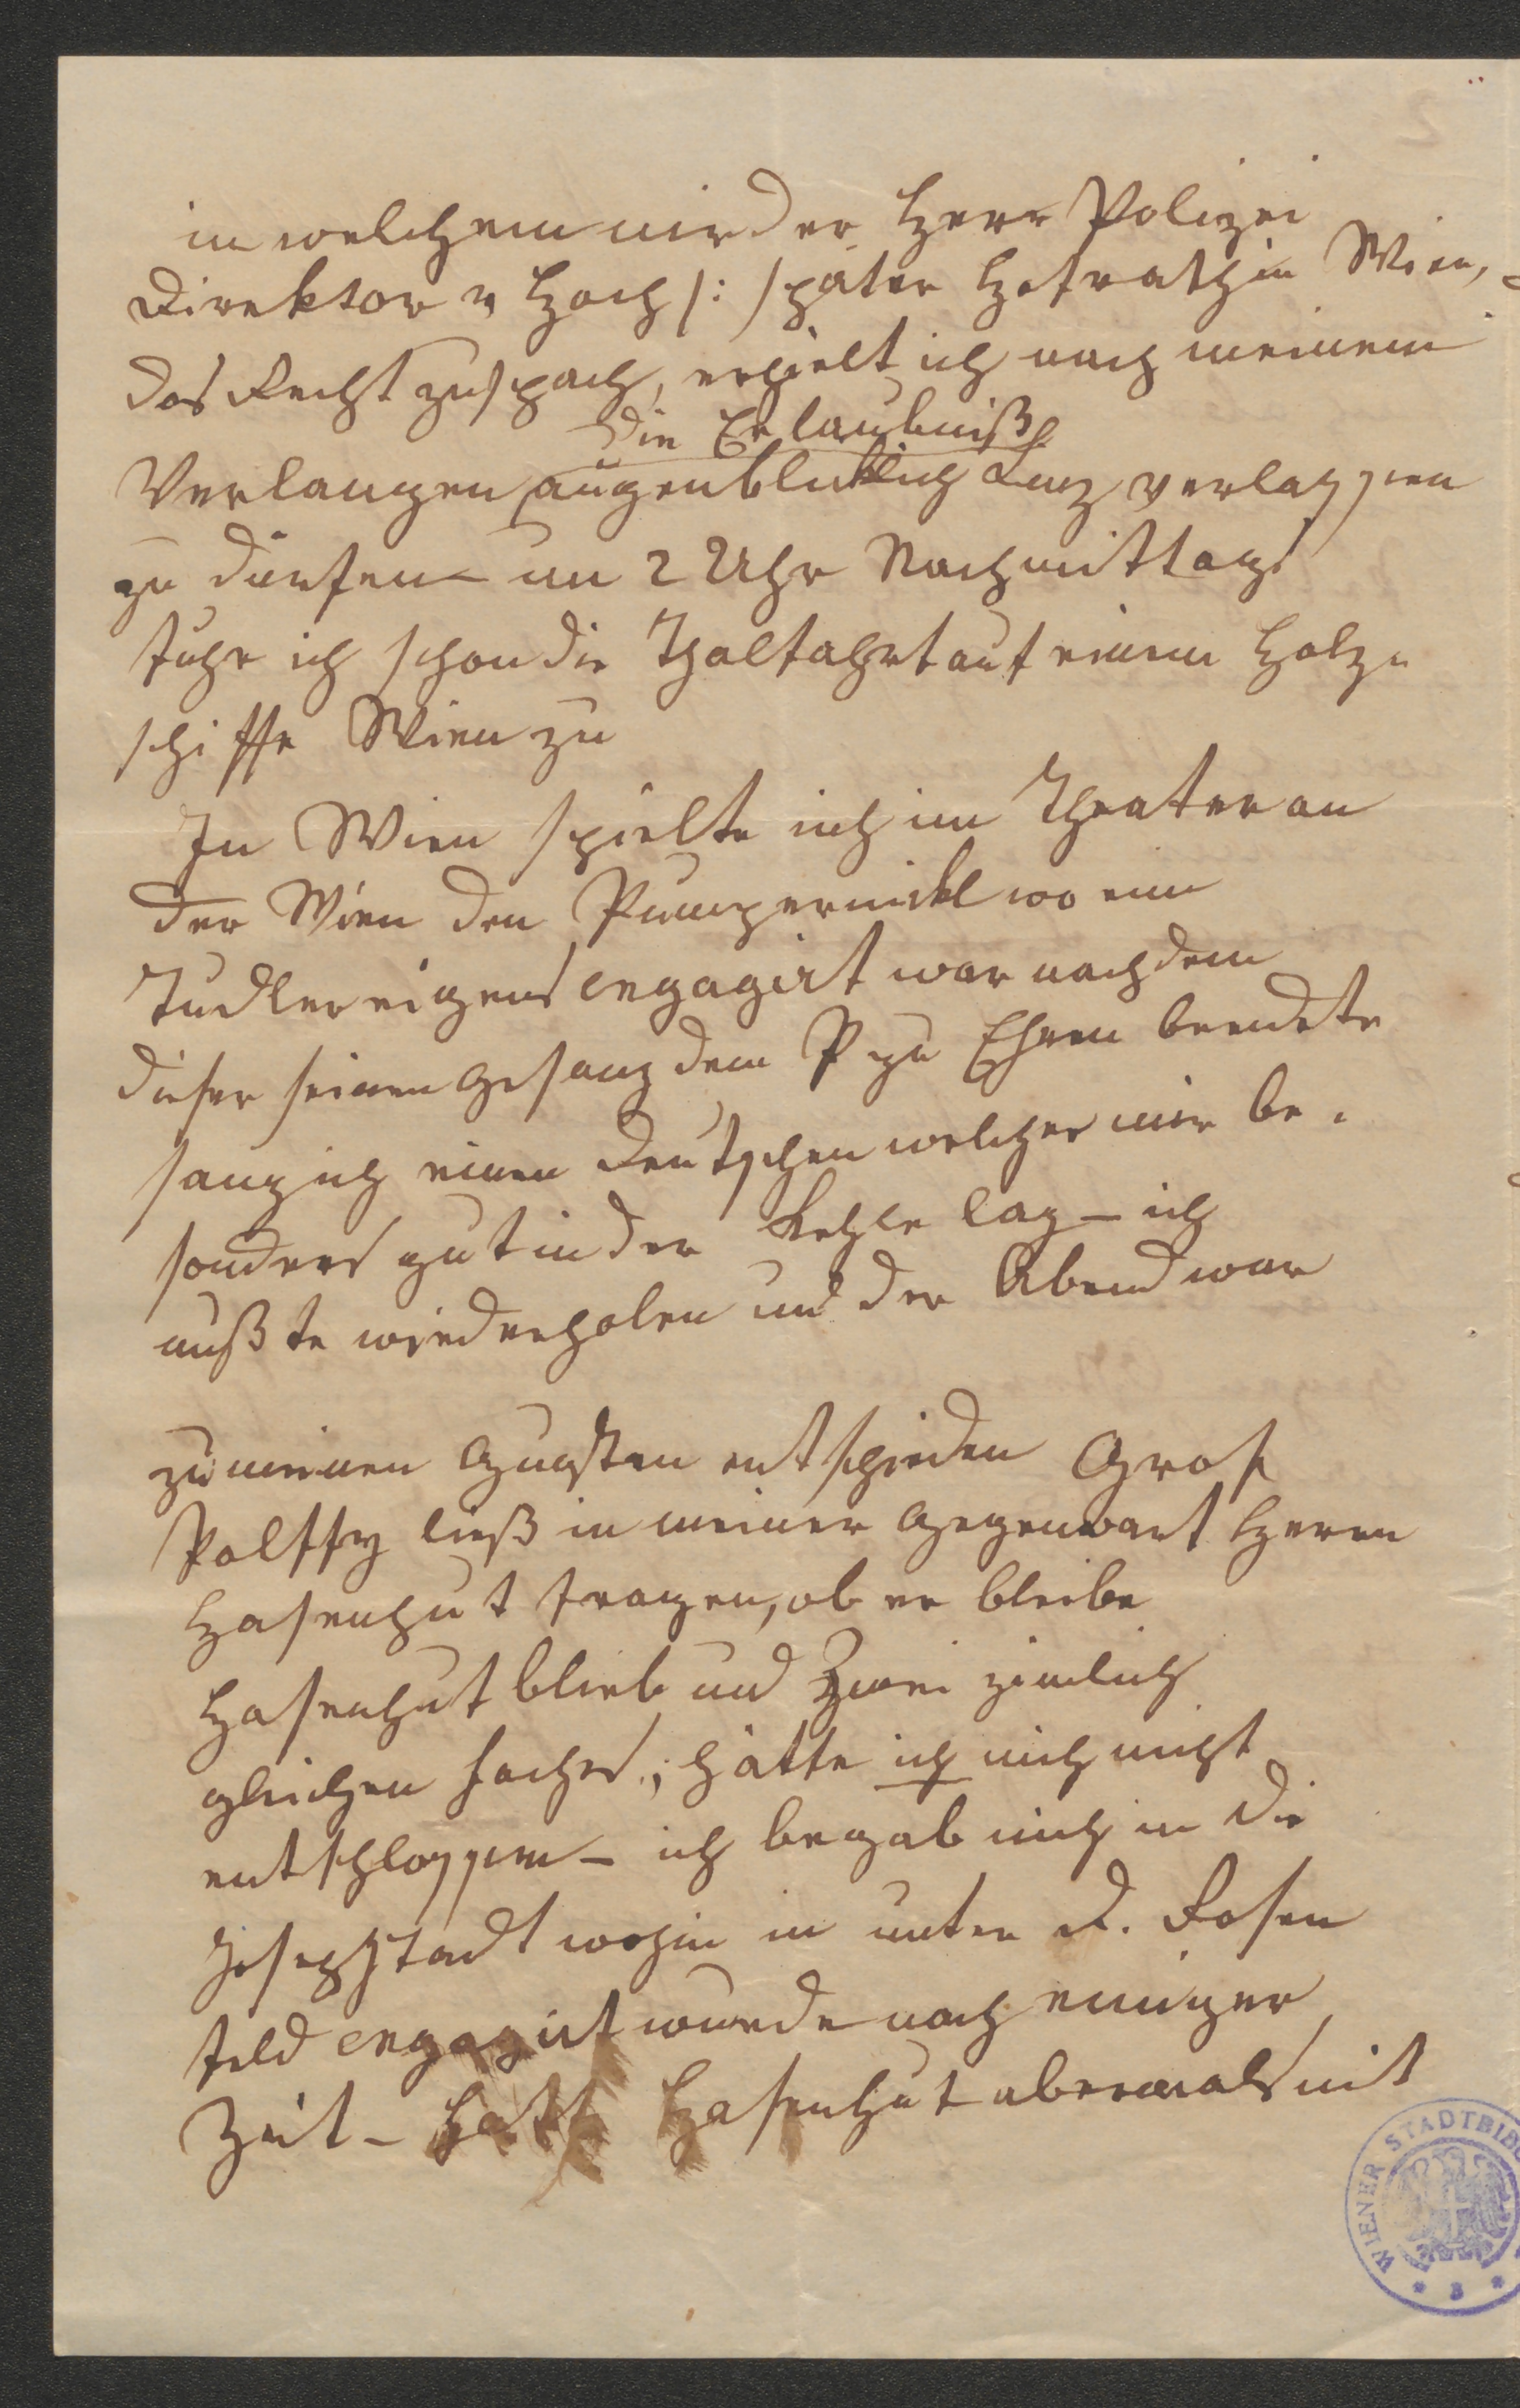 in welchem mir der Herr Polizei
Direktor v Hoch /: später Hofrath in Wien,
das Recht zuspach, erhielt ich nach meinem
die Erlaubniß
Verlangen augenblicklich Linz verlassen
zu dürfen – um 2 Uhr Nachmittags
fuhr ich schon die Thalfahrt auf einem Holz=
schiffe Wien zu
In Wien spielte ich im Theater an
der Wien den Pumpernickel wo ein
Judler eigens engagirt war nachdem
dieser seinen Gesang dem P zu Ehren beendete
sang ich einen Deutschen welcher mir be=
sonders gut in der Kehle lag – ich
mußte wiederholen und der Abend war
zu meinen Gunsten entschieden Graf
Palffy ließ in meiner Gegenwart Herrn
Hasenhut fragen, ob er bleibe
Hasenhut blieb und Zwei zimlich
gleichen Faches, hätte ich mich nicht
entschlossen – ich begab mich in die
Josephstadt wohin in unter D. Rosen
feld engagirt wurde nach einiger
Zeit – hatt Hasenhut abermals mit
WIENER STADTBIB
* B *